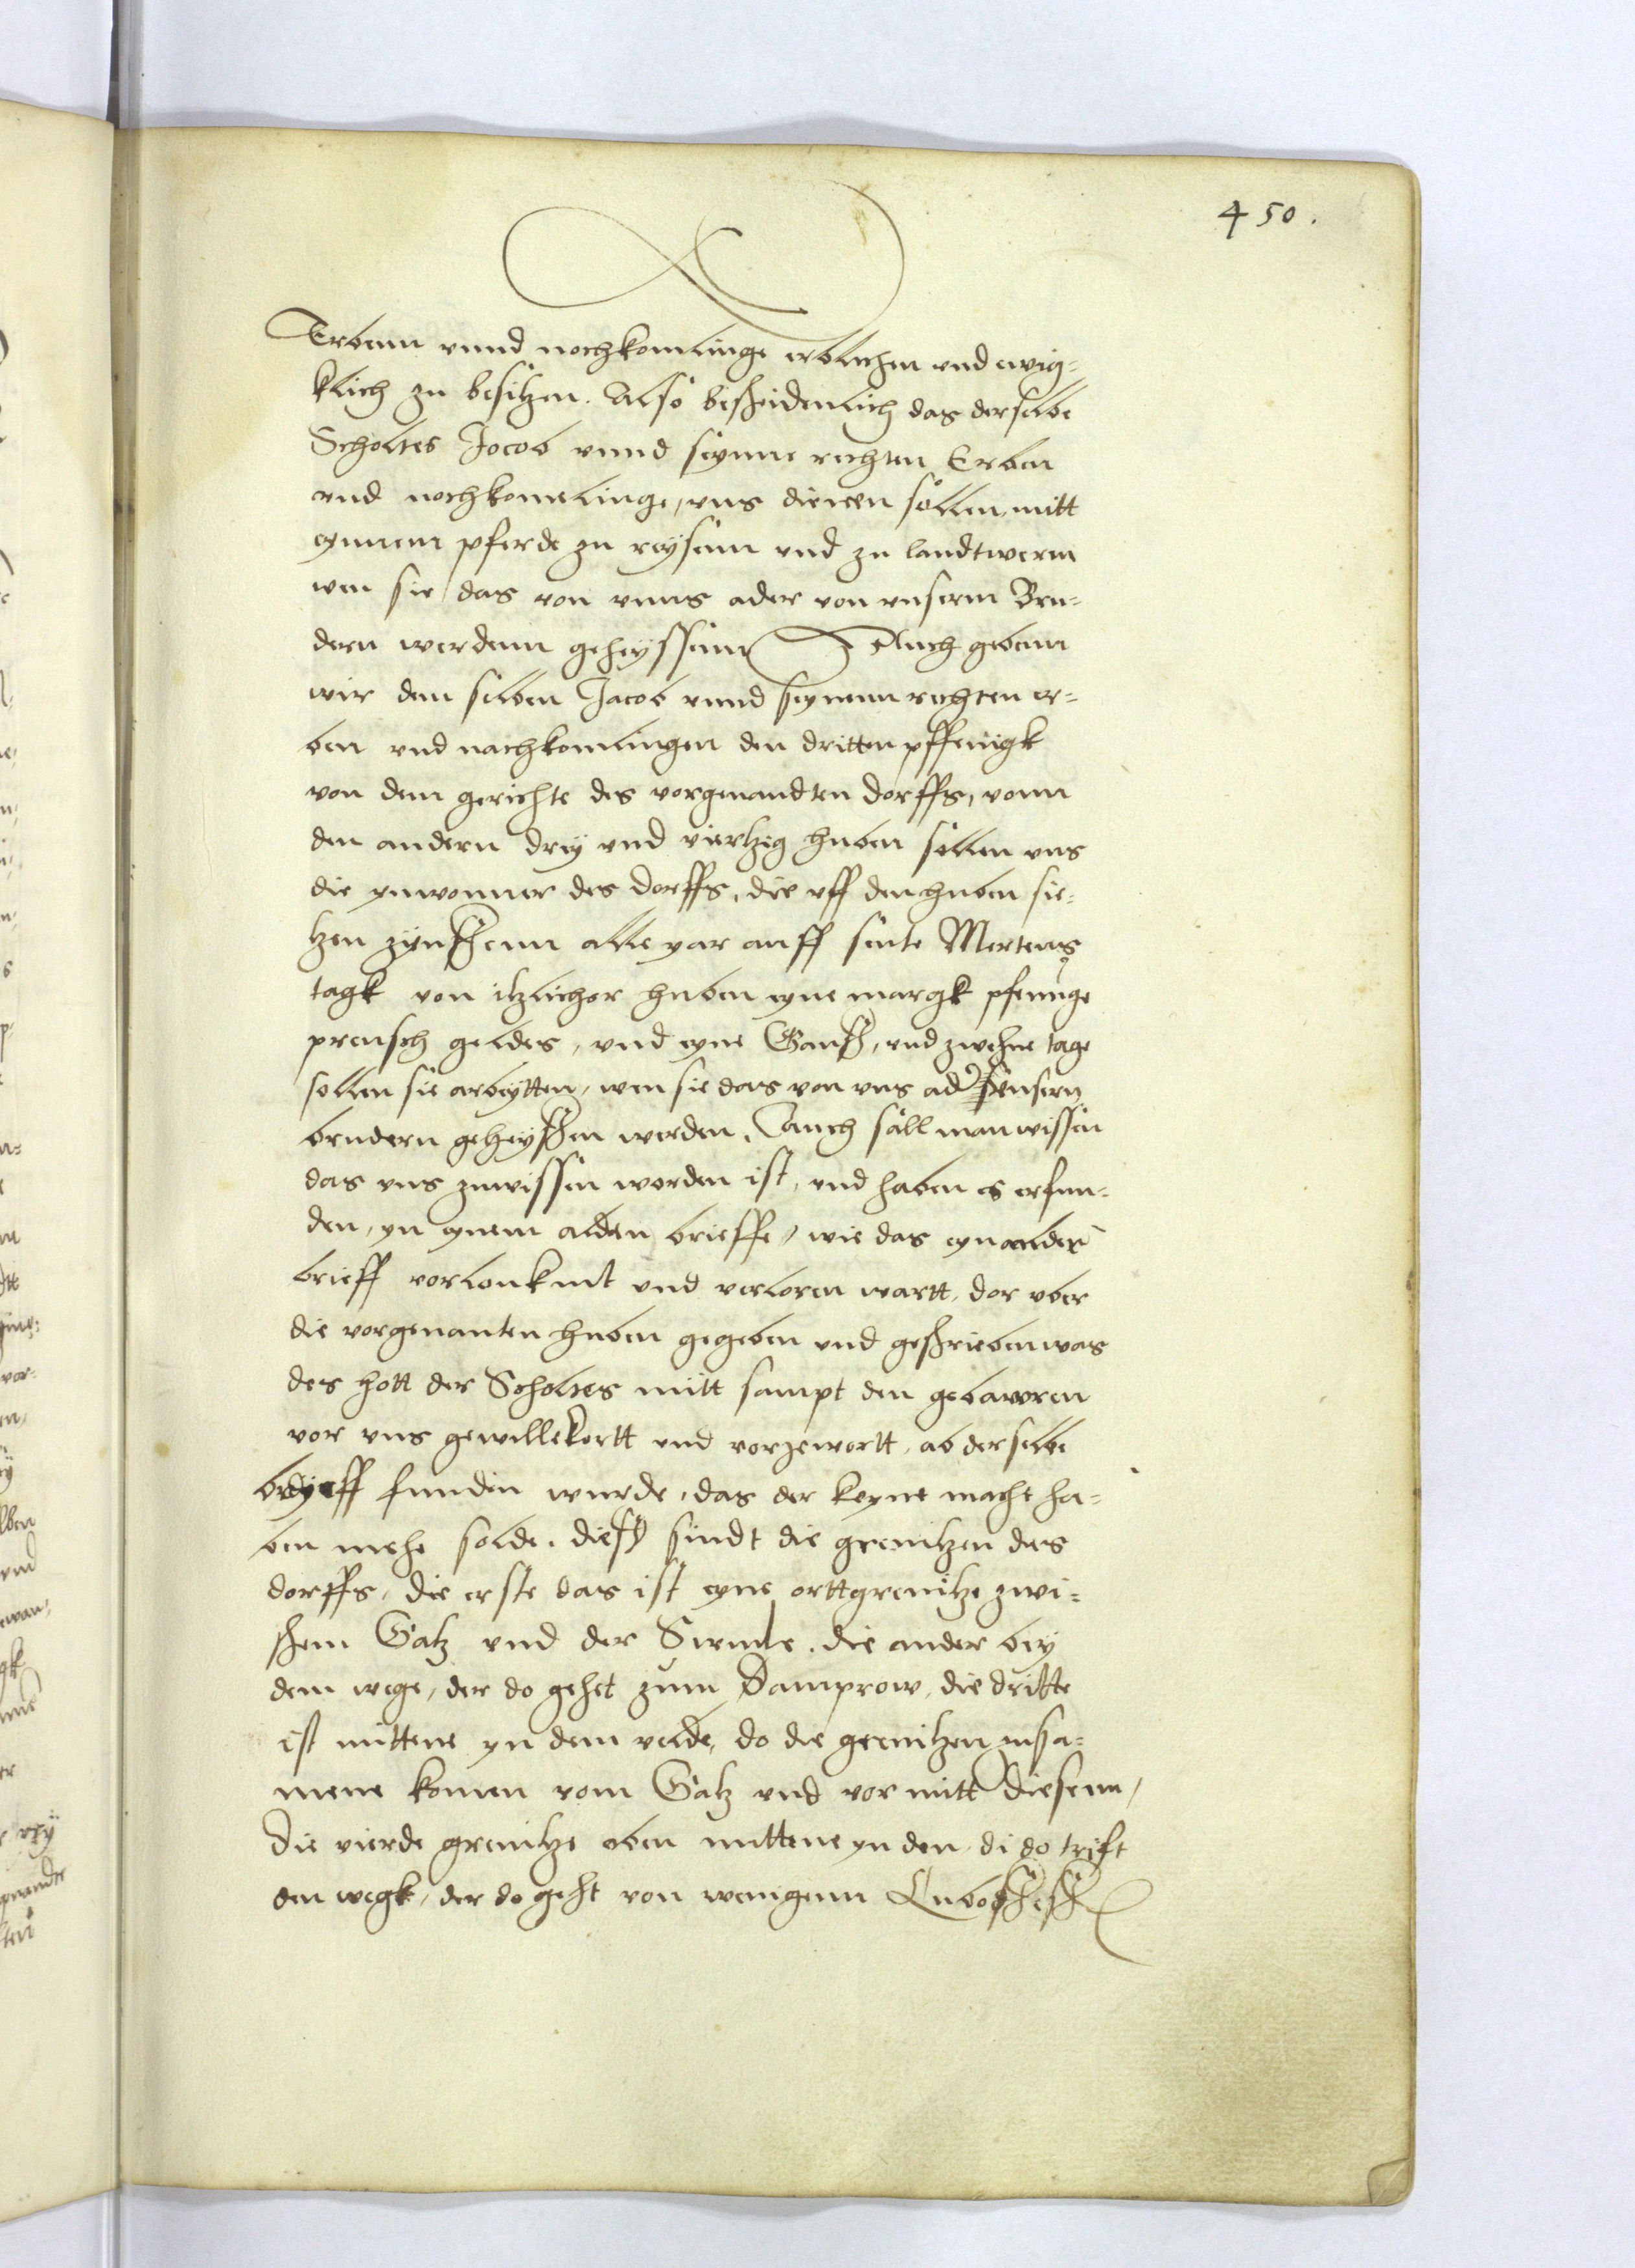 450.
Erbenn vnnd nochkomlinge erblichen und ewig=
klich zu besitzen. Also bescheidenlich das derselbe
Scholtes Jocob vnnd seynne rechten Erben
vnd nochkomelinge, vns dienen sollen, mitt
eynnem pferde zu reysenn vnd zu landtweren
wen sie das von vnns ader von vnsernn Bru=
dern werdenn geheyssenn Auch gebenn
wir dem selben Jacob vnnd seynenn rechten er=
ben vnd nachkomlingen den dritten pffenigk
von dem gerichte des vorgenandten dorffs, vonn
den andern drey vnd viertzig huben sollen vns
die ynwonner des dorffs, die vff den huben sie=
tzen zynßenn alle yar auff sente Mertens
tagk von itzlicher huben eyne margk pfennige
preusch geldes, vnd eyne Ganß, vnd zwehne tage
sollen sie arbeytten, wen sie das von vns ader vnsern
brudern geheyßen werden. Auch sall man wissen
das vns zuwissen worden ist, vnd haben es erfun=
den, yn eynem alden brieffe, wie das eyn ander
brieff vorlonkent vnd verloren wartt, dor vber
die vorgenanten huben gegeben vnd geschrieben was
des hott der Scholtes mitt sampt den gebawren
vor vns gewillekortt vnd vorjewortt, ab derselbe
bryeff funden wurde, das der keyne macht ha=
ben mehe solde. dieß sindt die grenitzen des
dorffs, die erste das ist eyne orttgrenitze zwi=
schenn Galz vnd der die ander bey
dem wege, der do gehet zum Damprow, die dritte
ist mittene yn dem velde, do die grenitzen zusa=
mene komen vom Galz vnd vor mitt diesenn,
die vierde grenitze oben mittene yn den di do trift
den wegk, der do geht von wenigenn